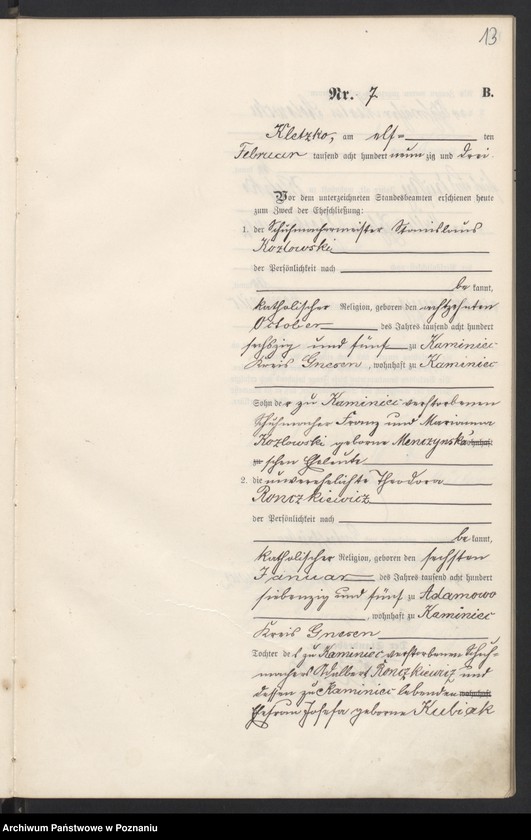 13
Nr. 7 B.
Kletzko, am elf= ten
Februar tausend acht hundert neun zig und drei.
Vor dem unterzeichneten Standesbeamten erschienen heute
zum Zweck der Eheschließung:
1. der Schuhmachermeister Stanislaus
Kozlowski
der Persönlichkeit nach
be kannt,
katholischer Religion, geboren den achtzehnten
October des Jahres tausend acht hundert
sechszig und fünf zu Kaminiec
Kreis Gnesen, wohnhaft zu Kaminiec
Sohn der zu Kaminiec verstorbenen
Schuhmacher Franz und Marianna
Kozlowski geborne Menczynska wohnhaft
zu schen Eheleute
2. die unverehelichte Theodora
Ronczkiewicz
der Persönlichkeit nach
be kannt,
katholischer Religion, geboren den sechsten
Januar des Jahres tausend acht hundert
siebenzig und fünf zu Adamowo
, wohnhaft zu Kaminiec
Kreis Gnesen
Tochter des zu Kaminiec verstorbenen Schuh-
machers Adalbert Ronczkiewicz und
dessen zu Kaminiec lebenden wohnhaft
Ehefrau Josefa geborne Kubiak
Archiwum Państwowe w Poznaniu